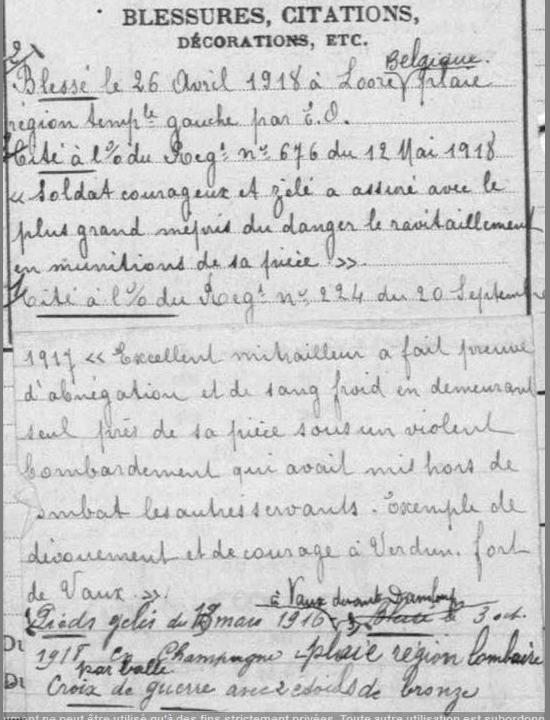 BLESSURES, CITATIONS,
DÉCORATIONS, ETC.
2/
Belgique.
Blessé le 26 Avril 1918 à Loore plaie
région temple gauche par E.O.
Cité à l'O/ du Regt no 676 du 12 Mai 1918
« Soldat courageux et zélé a assuré avec le
plus grand mépris du danger le ravitaillement
en munitions de sa pièce ».
Cité à l'O/ du Regt no 224 du 20 Septembre
1917 « Excellent mitrailleur a fait preuve
d'abnégation et de sang froid en demeurant
seul près de sa pièce sous un violent
bombardement qui avait mis hors de
ombat les autres servants. Exemple de
dévouement et de courage à Verdun. fort
de Vaux ».
à Vaux devant Damloup
Pieds gelés du mars 1916 3 oct.
1918 en Champagne plaie région lombaire
par balle
Croix de guerre avec 2 étoiles de bronze
ne peut être utilisé qu'à des fins strictement privées. Toute autre utilisation est